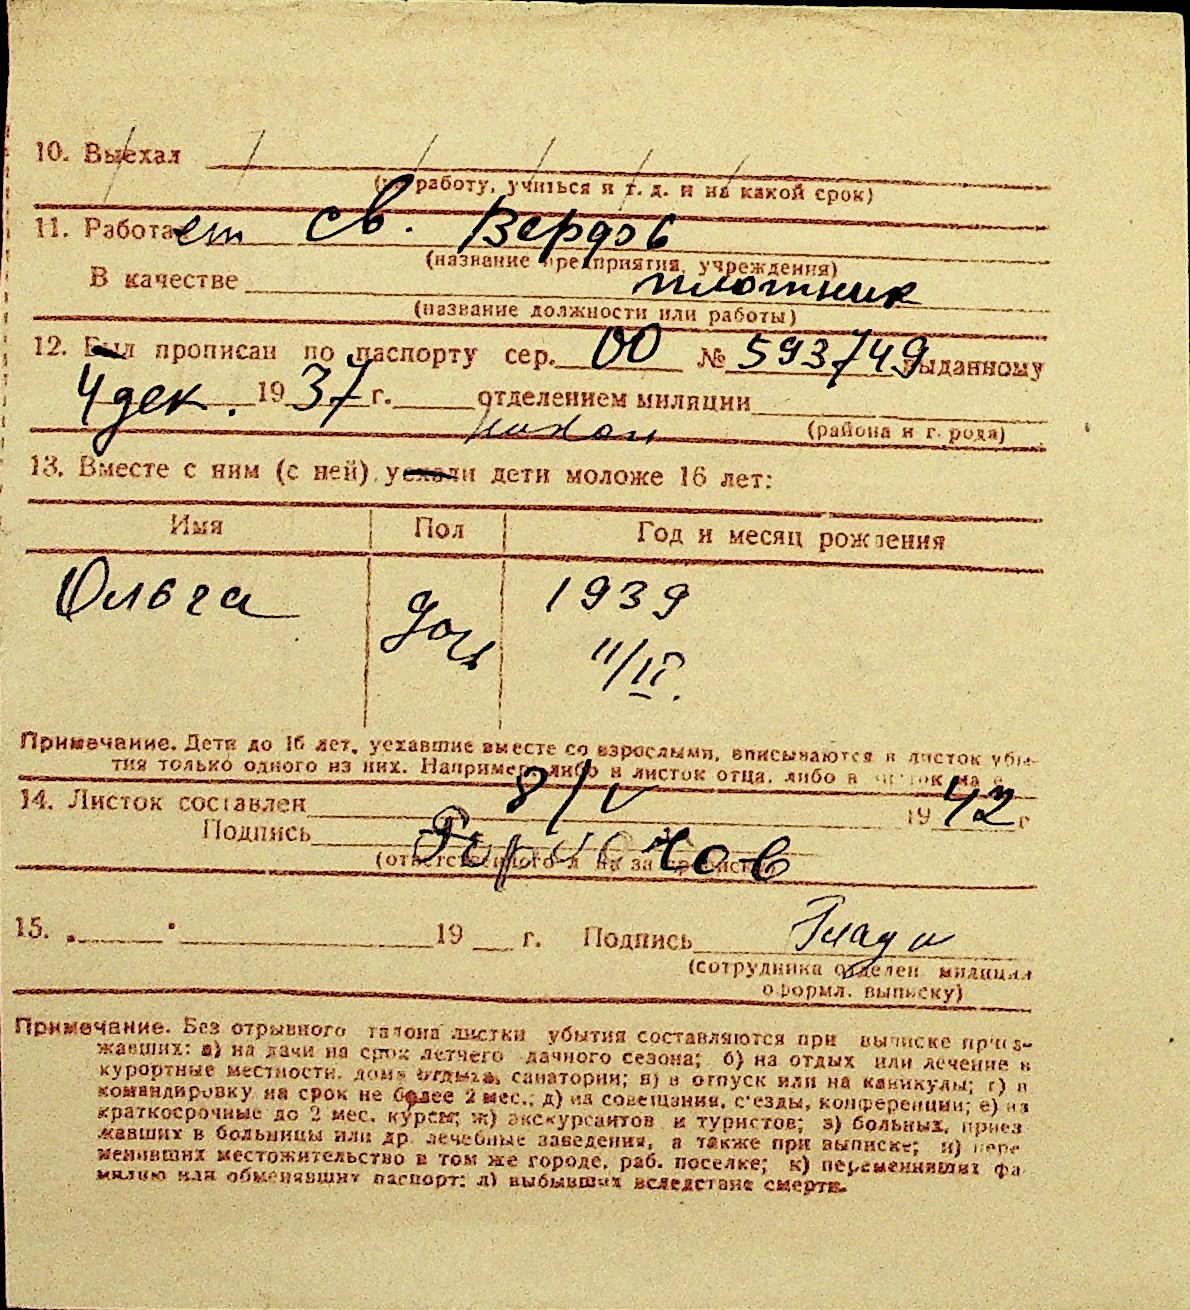 10. Выехал
(на работу, учиться и т. д. и на какой срок)
11. Работает св. Вердов
(название предприятия, учреждения)
В качестве плотник
(название должности или работы)
12. Был прописан по паспорту сер. 00 № 593749 выданному
4 дек. 1937 г. отделением милиции
(района и города)
13. Вместе с ним (с ней) уехали дети моложе 16 лет:
Имя Пол Год и месяц рождения
Ольга доч 1939
11/II.
Примечание. Дети до 16 лет, уехавшие вместе со взрослыми, вписываются в листок убы-
тия только одного из них. Например, либо в листок отца, либо в листок
14. Листок составлен 8/V 1942 г
Подпись
(ответственного за прописку)
15. " " 19 г. Подпись
(сотрудника отделен. милиции
оформл. выписку)
Примечание. Без отрывного талона листки убытия составляются при выписке приез-
жавших: а) на дачи на срок летнего дачного сезона; б) на отдых или лечение в
курортные местности, дома отдыха, санатории; в) в отпуск или на каникулы; г) в
командировку на срок не более 2 мес.; д) на совещания, съезды, конференции; е) на
краткосрочные до 2 мес. курсы; ж) экскурсантов и туристов; з) больных, приез
жавших в больницы или др. лечебные заведения, а также при выписке; и) пере
менивших местожительство в том же городе, раб. поселке; к) переменивших фа
милию или обменявших паспорт; л) выбывших вследствие смерти.